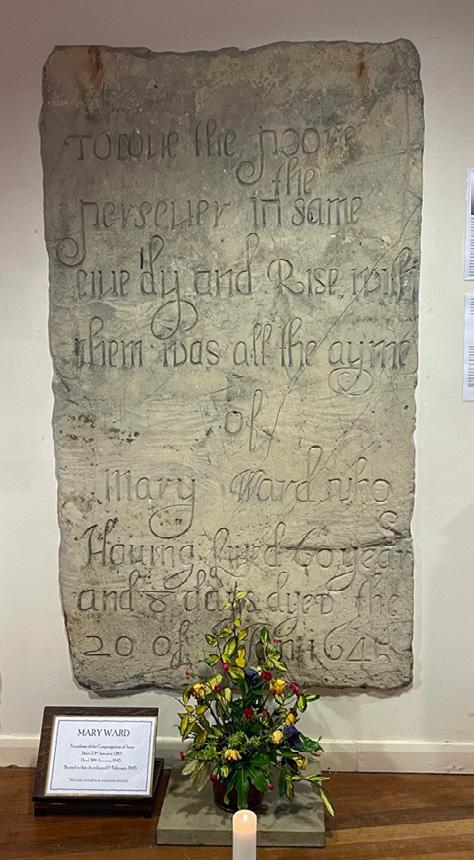 To loue the poore
the
perseuer in same
liue dy and Rise with
them was all the ayme
of
Mary Ward who
Hauing liued 60 year
s
and 8 days dyed the
20 of Ian 1645
MARY WARD
Foundress of the Congregation of Jesus
Born 23rd January 1585
Died 30th January 1645